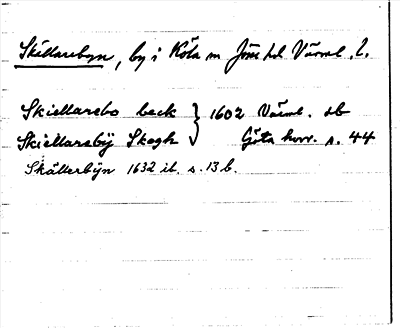 Skällarebyn, by i Köla sn Jösse hd Värml. l.
Skiellarebo beck } 1602 Värml. hb
Skiellarebÿ Skogh Göta hovr. s. 44
Skällerbÿn 1632 ib. s. 13 b.